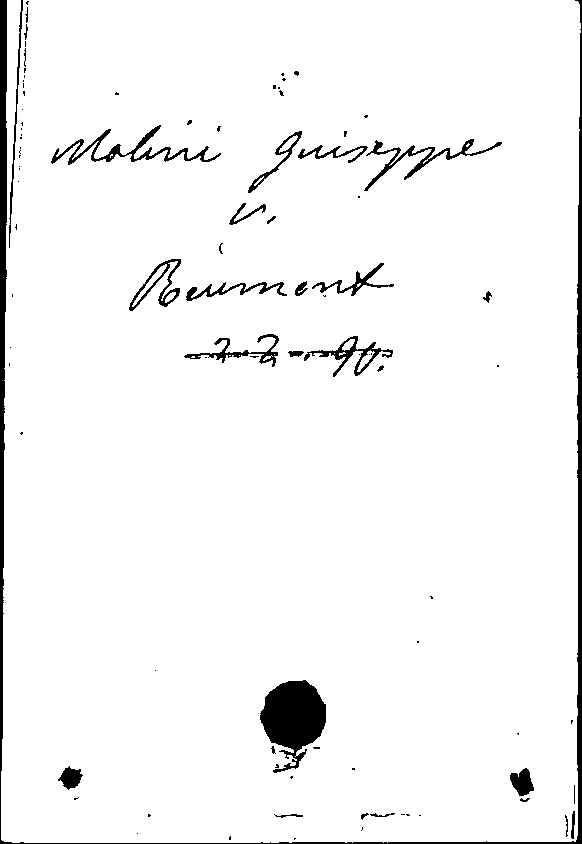 Molini Guiseppe
v.
Beumont